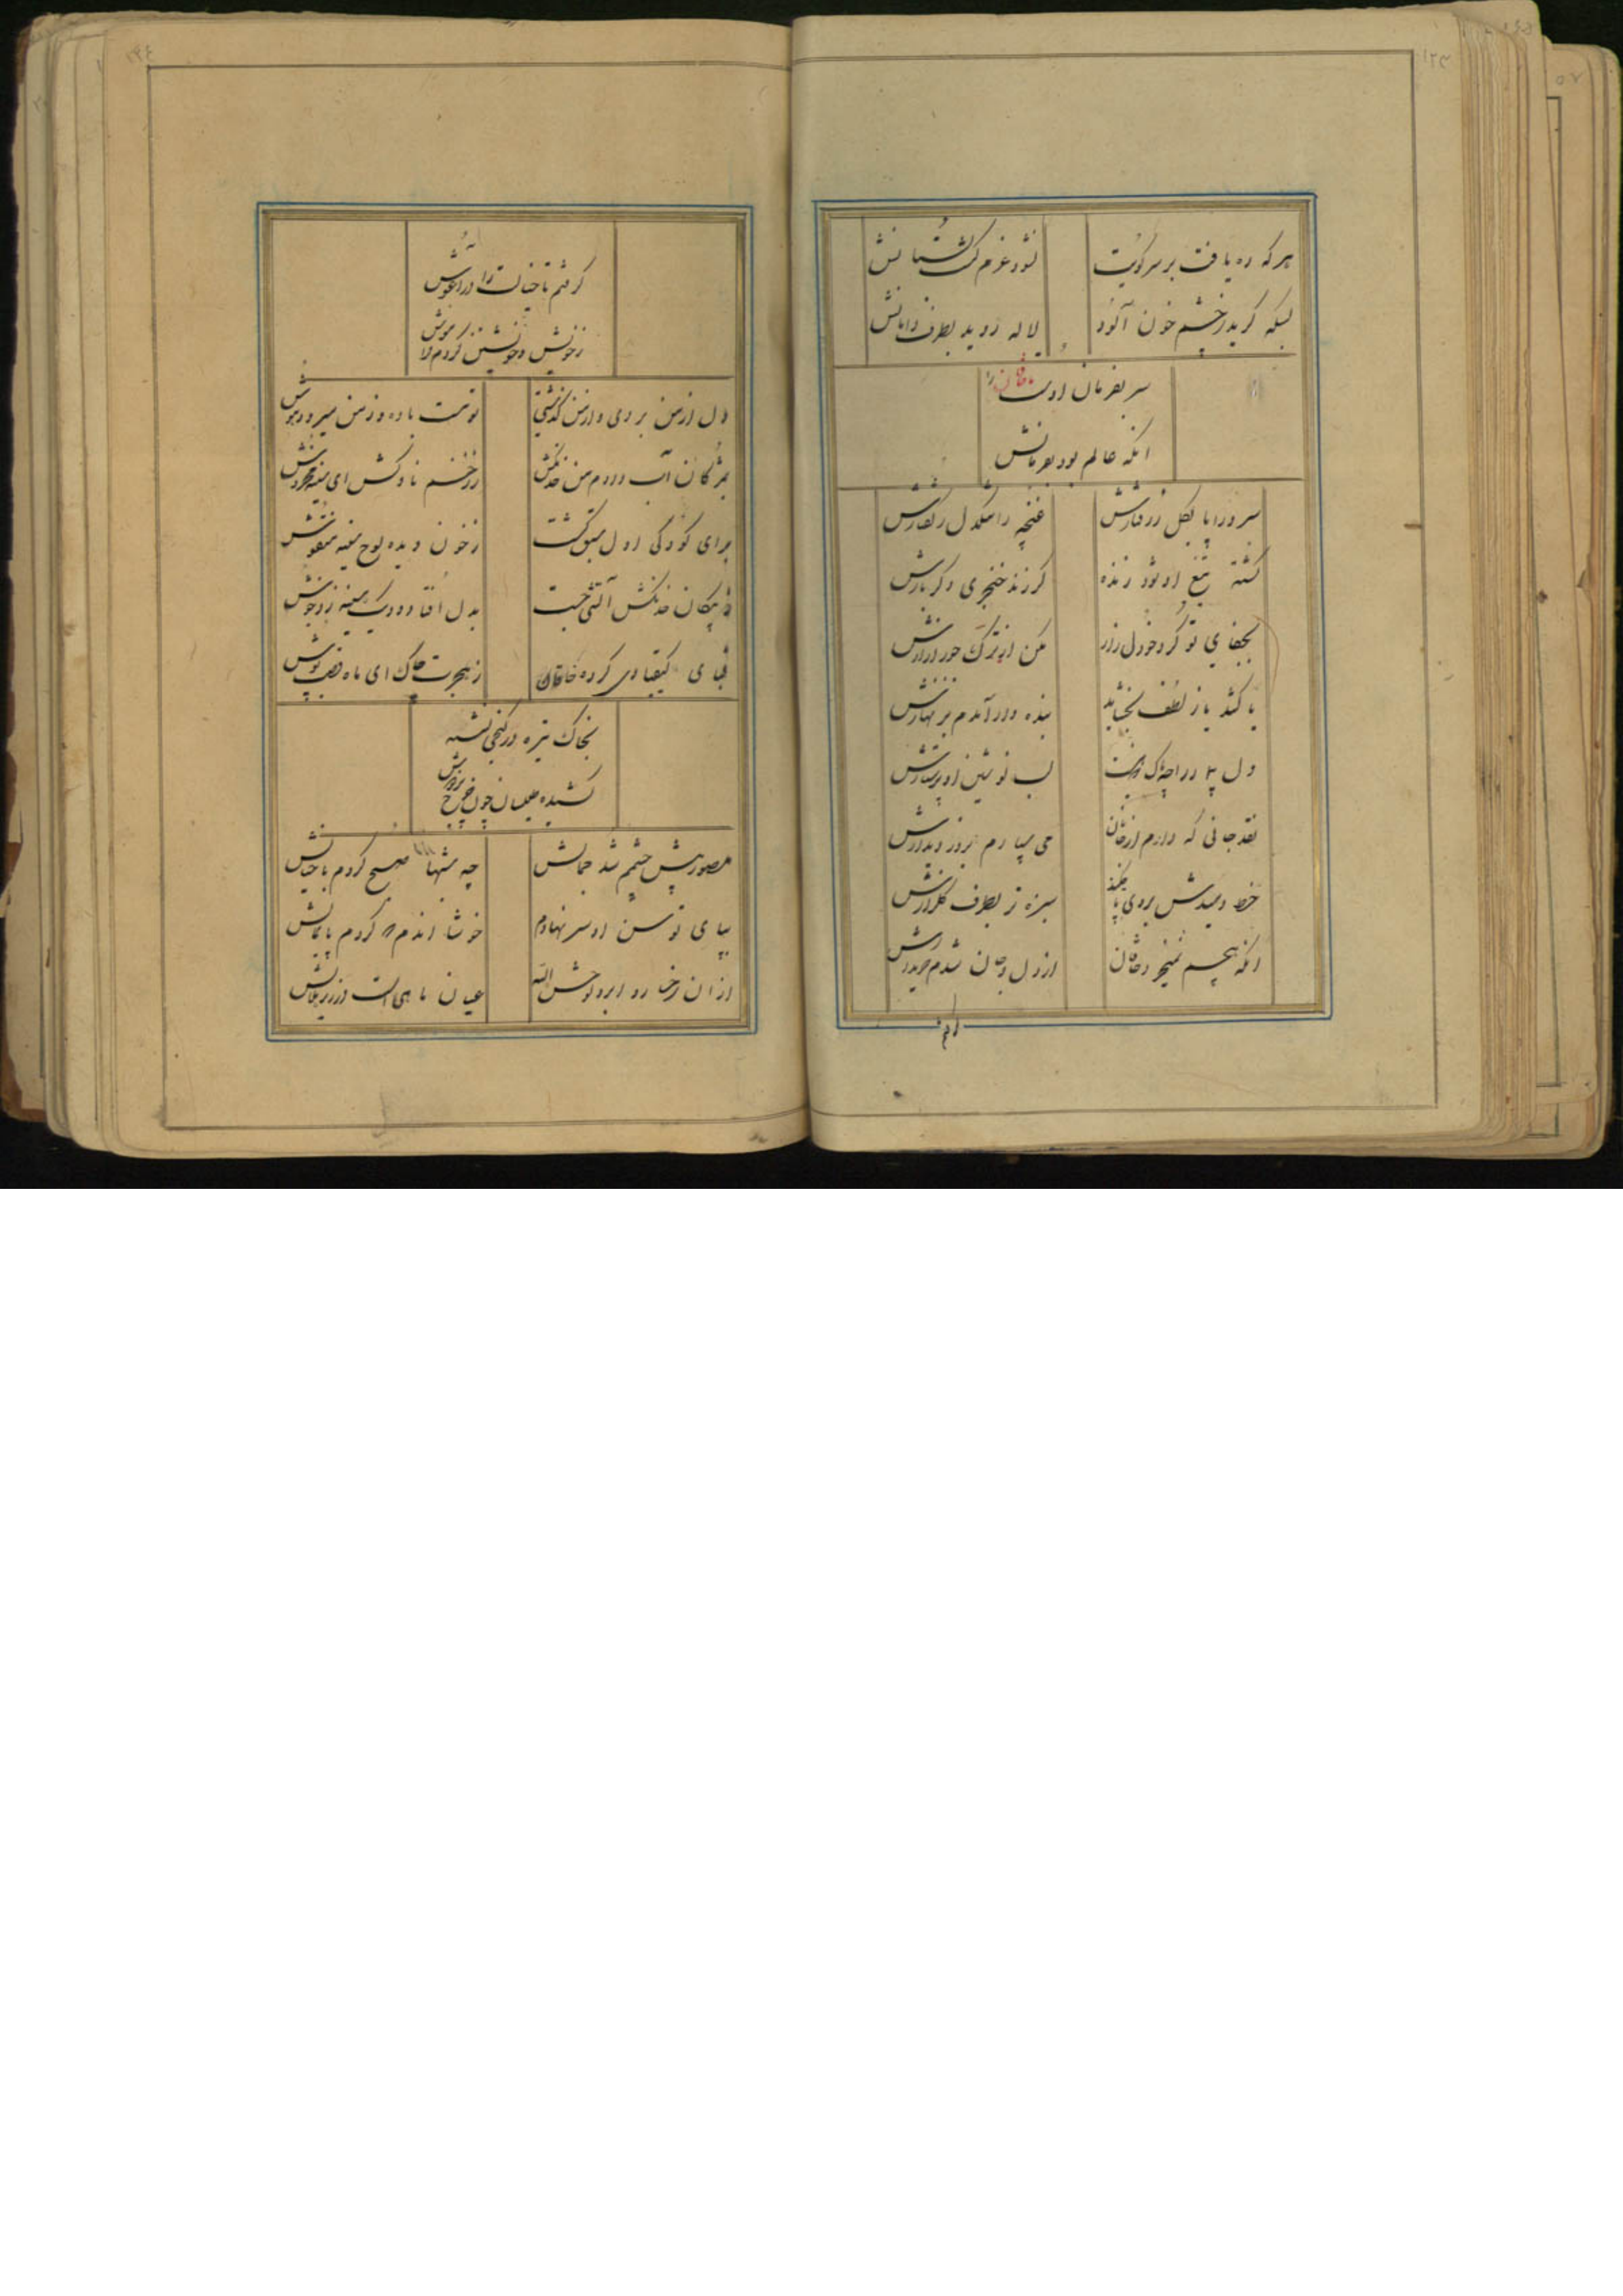 هر که ره یافت بر سر کویت
نشود عزم گلستانش
بسکه گرید ز چشم خون آلود
لاله روید بطرف دامانش
سر بفرمان اوست خاقان را
آنکه عالم بود بفرمانش
سرو را پا بگل ز رفتارش
غنچه را تنگدل ز گفتارش
کشته تیغ او شود زنده
گر زند خنجری دگر بارش
بجفای تو کرده خو دل زار
مکن از ترک جور آزارش
یا کشد یا ز لطف بخشاید
بنده وار آمدم بزنهارش
دل
لب نوشین او پرستارش
نقد جانی که دارم از خاقان
می سپارم بروز دیدارش
خط دمیدش بروی
سبزه تر بطرف گلزارش
آنکه هیچم نمیخرد خاقان
از دل و جان شدم خریدارش
گرفتم تا خیالت را در آغوش
ز خویش و خویشتن کردم فراموش
دل از من بردی و از من گذشتی
تو مست باده و ز من میرود هوش
بمژگان آب دادم من خدنگش
ز زخم ناوکش ای سینه مخروش
برای کودکی اول سبق گشت
ز خون دیده لوح سینه منقوش
ز پیکان خدنگش آتشی جست
بدل افتاد و دیک سینه زد جوش
قبای کیقبادی کرده خاقان
ز هجرت چاک ای ماه قصب پوش
بخاک تیره در کنجی نشسته
کشیده طیلسان چون بر دوش
مصور پیش چشمم شد جمالش
چه شبها صبح کردم با خیالش
بپای توسن او سر نهادم
خوشا آندم که کردم پایمالش
از آن رخسار و ابرو
عیان ماهی است در زیر هلالش